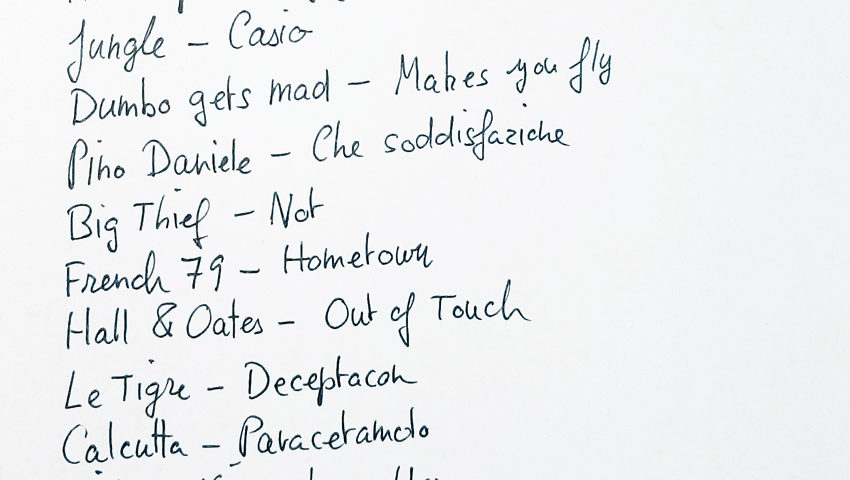 Jungle – Casio
Dumbo gets mad – Makes you fly
Pino Daniele – Che soddisfaziche
Big Thief – Not
French 79 – Hometown
Hall & Oates – Out of Touch
Le Tigre – Deceptacon
Calcutta – Paracetamolo